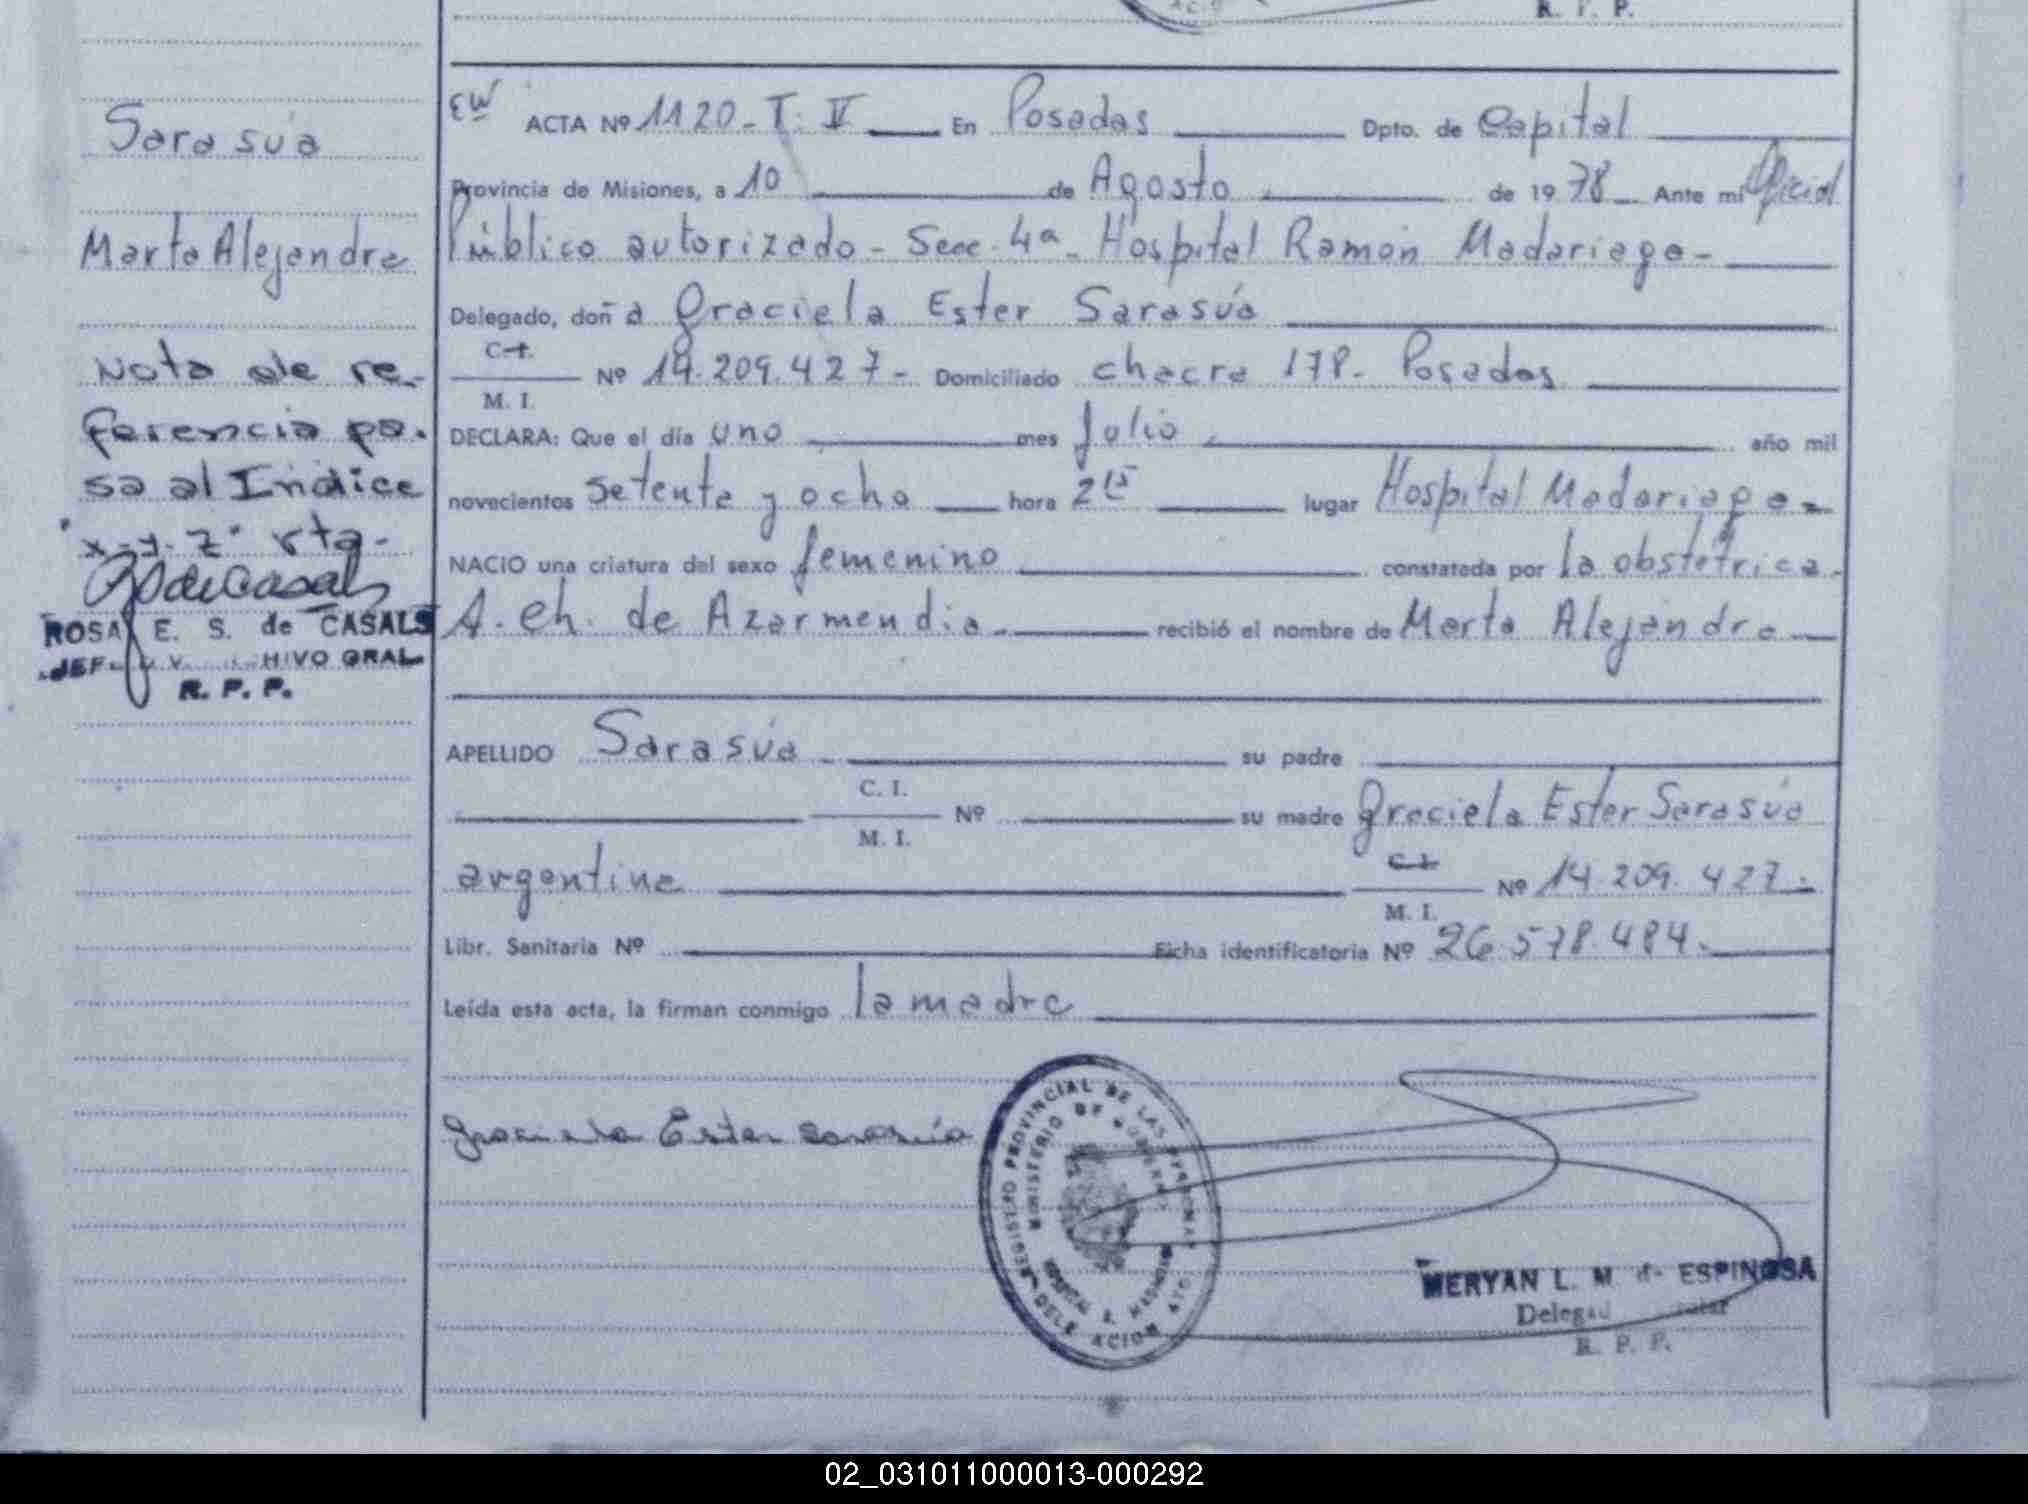 R. P. P.
EW ACTA Nº 1120 - T. V En Posadas Dpto. de Capital
Provincia de Misiones, a 10 de Agosto de 1978 Ante mi Oficial
Público autorizado - Secc. 4ª - Hospital Ramón Madariaga -
Delegado, doña Graciela Ester Sarasúa
C. I.
M. I. Nº 14.209.427 - Domiciliado chacra 178 - Posadas
DECLARA: Que el día uno mes Julio año mil
novecientos setenta y ocho hora 2 15 lugar Hospital Madariaga -
NACIO una criatura del sexo femenino constatada por la obstétrica
A. Ch. de Azarmendia - recibió el nombre de Marta Alejandra
APELLIDO Sarasúa su padre
C. I.
M. I. Nº su madre Graciela Ester Sarasúa
argentina C. I.
M. I. Nº 14.209.427 -
Libr. Sanitaria Nº Ficha identificatoria Nº 26.578.484 -
Leída esta acta, la firman conmigo la madre
Graciela Ester Sarasúa
REGISTRO PROVINCIAL DE LAS PERSONAS
MINISTERIO DE GOBIERNO
HOSPITAL R. MADARIAGA
DELEGACION 4TO
MERYAN L. M. de ESPINOSA
Delegad
R. P. P.
Sarasúa
Marta Alejandra
Nota de re-
ferencia pa-
sa al Indice
"x-y-z" rta-
ROSA E. S. de CASALS
JEF HIVO GRAL
R. P. P.
02_031011000013-000292